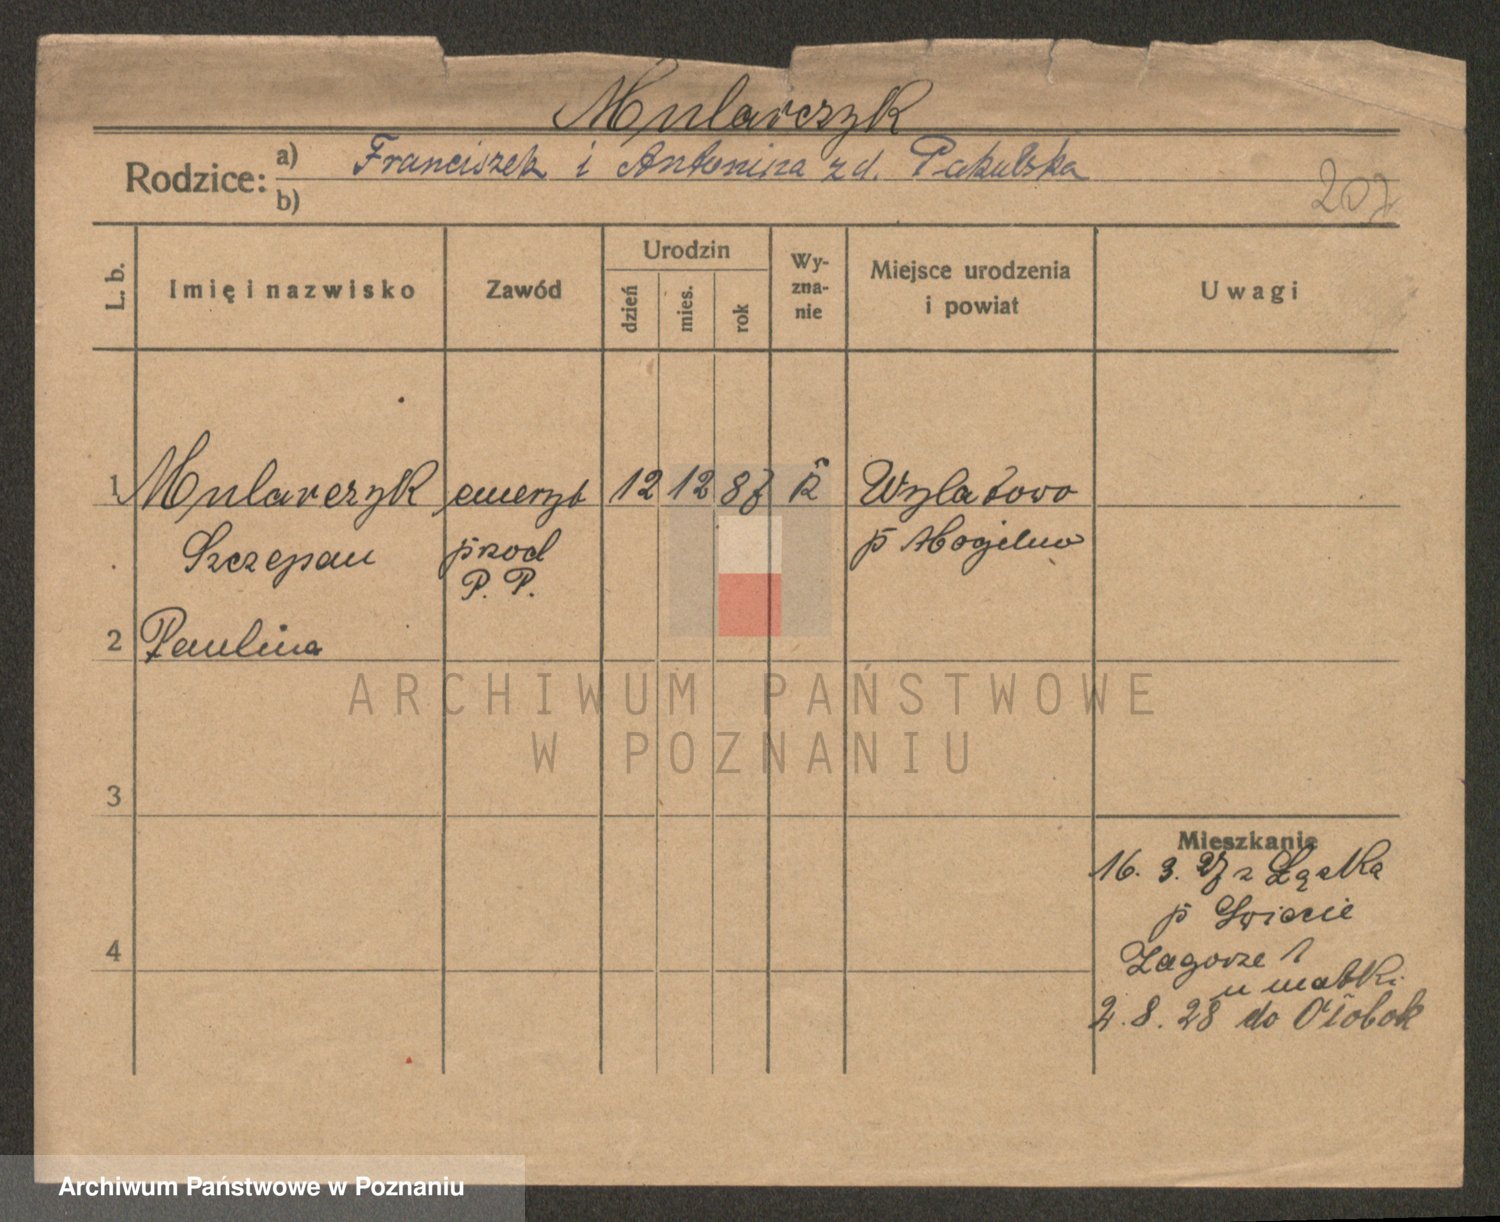 Mularczyk
Rodzice: a) Franciszek i Antonina z d. Pakulska
b)
207
L. b.
Imię i nazwisko
Zawód
Urodzin
dzień
mies.
rok
Wy-
zna-
nie
Miejsce urodzenia
i powiat
Uwagi
1 Mularczyk emeryt 12 12 87 R Wylatowo
Szczepan przod p Mogilno
P. P.
2 Paulina
ARCHIWUM PAŃSTWOWE
W POZNANIU
3
Mieszkanie
16. 3. 27 z
p Świecie
4
Zagorze 1
u matki
2. 8. 28 do Ołobok
Archiwum Państwowe w Poznaniu